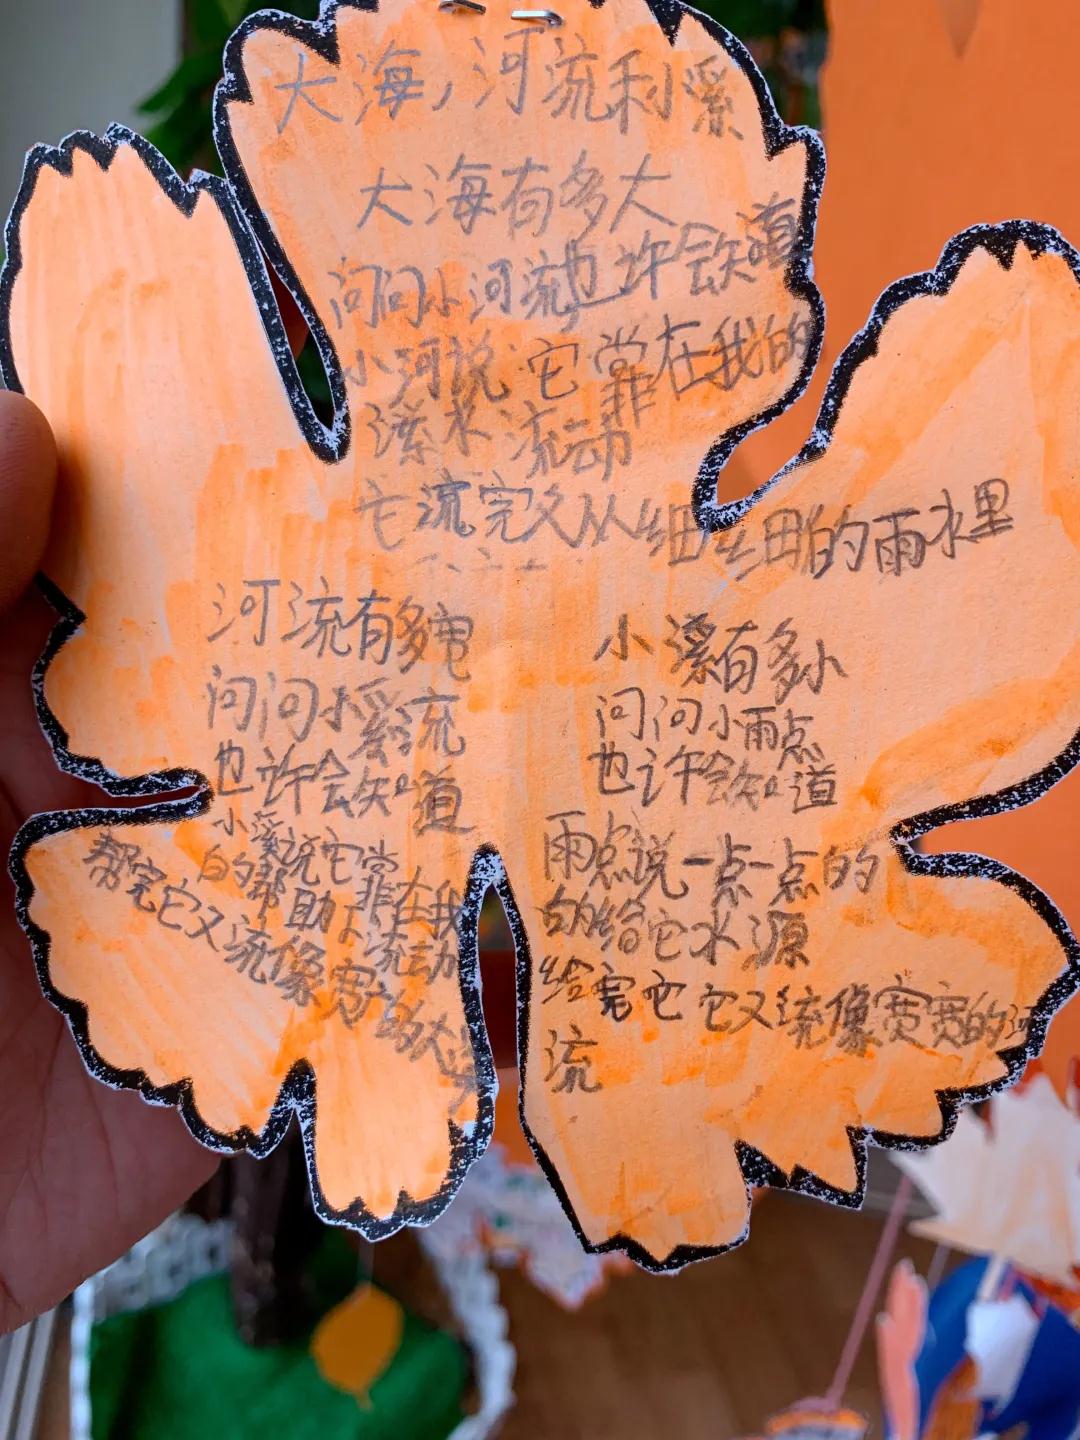 大海,河流和溪
大海有多大
问问小河流也许会知道
小河说:它常靠在我的
溪水流动
它流完又从细细的雨水里
河流有多宽
问问小溪流
也许会知道
小溪说它常靠在我
的帮助下流动
帮完它又流像宽广的大海
小溪有多小
问问小雨点
也许会知道
雨点说一点一点的
的给它水源
给完它它又流像宽宽的河
流